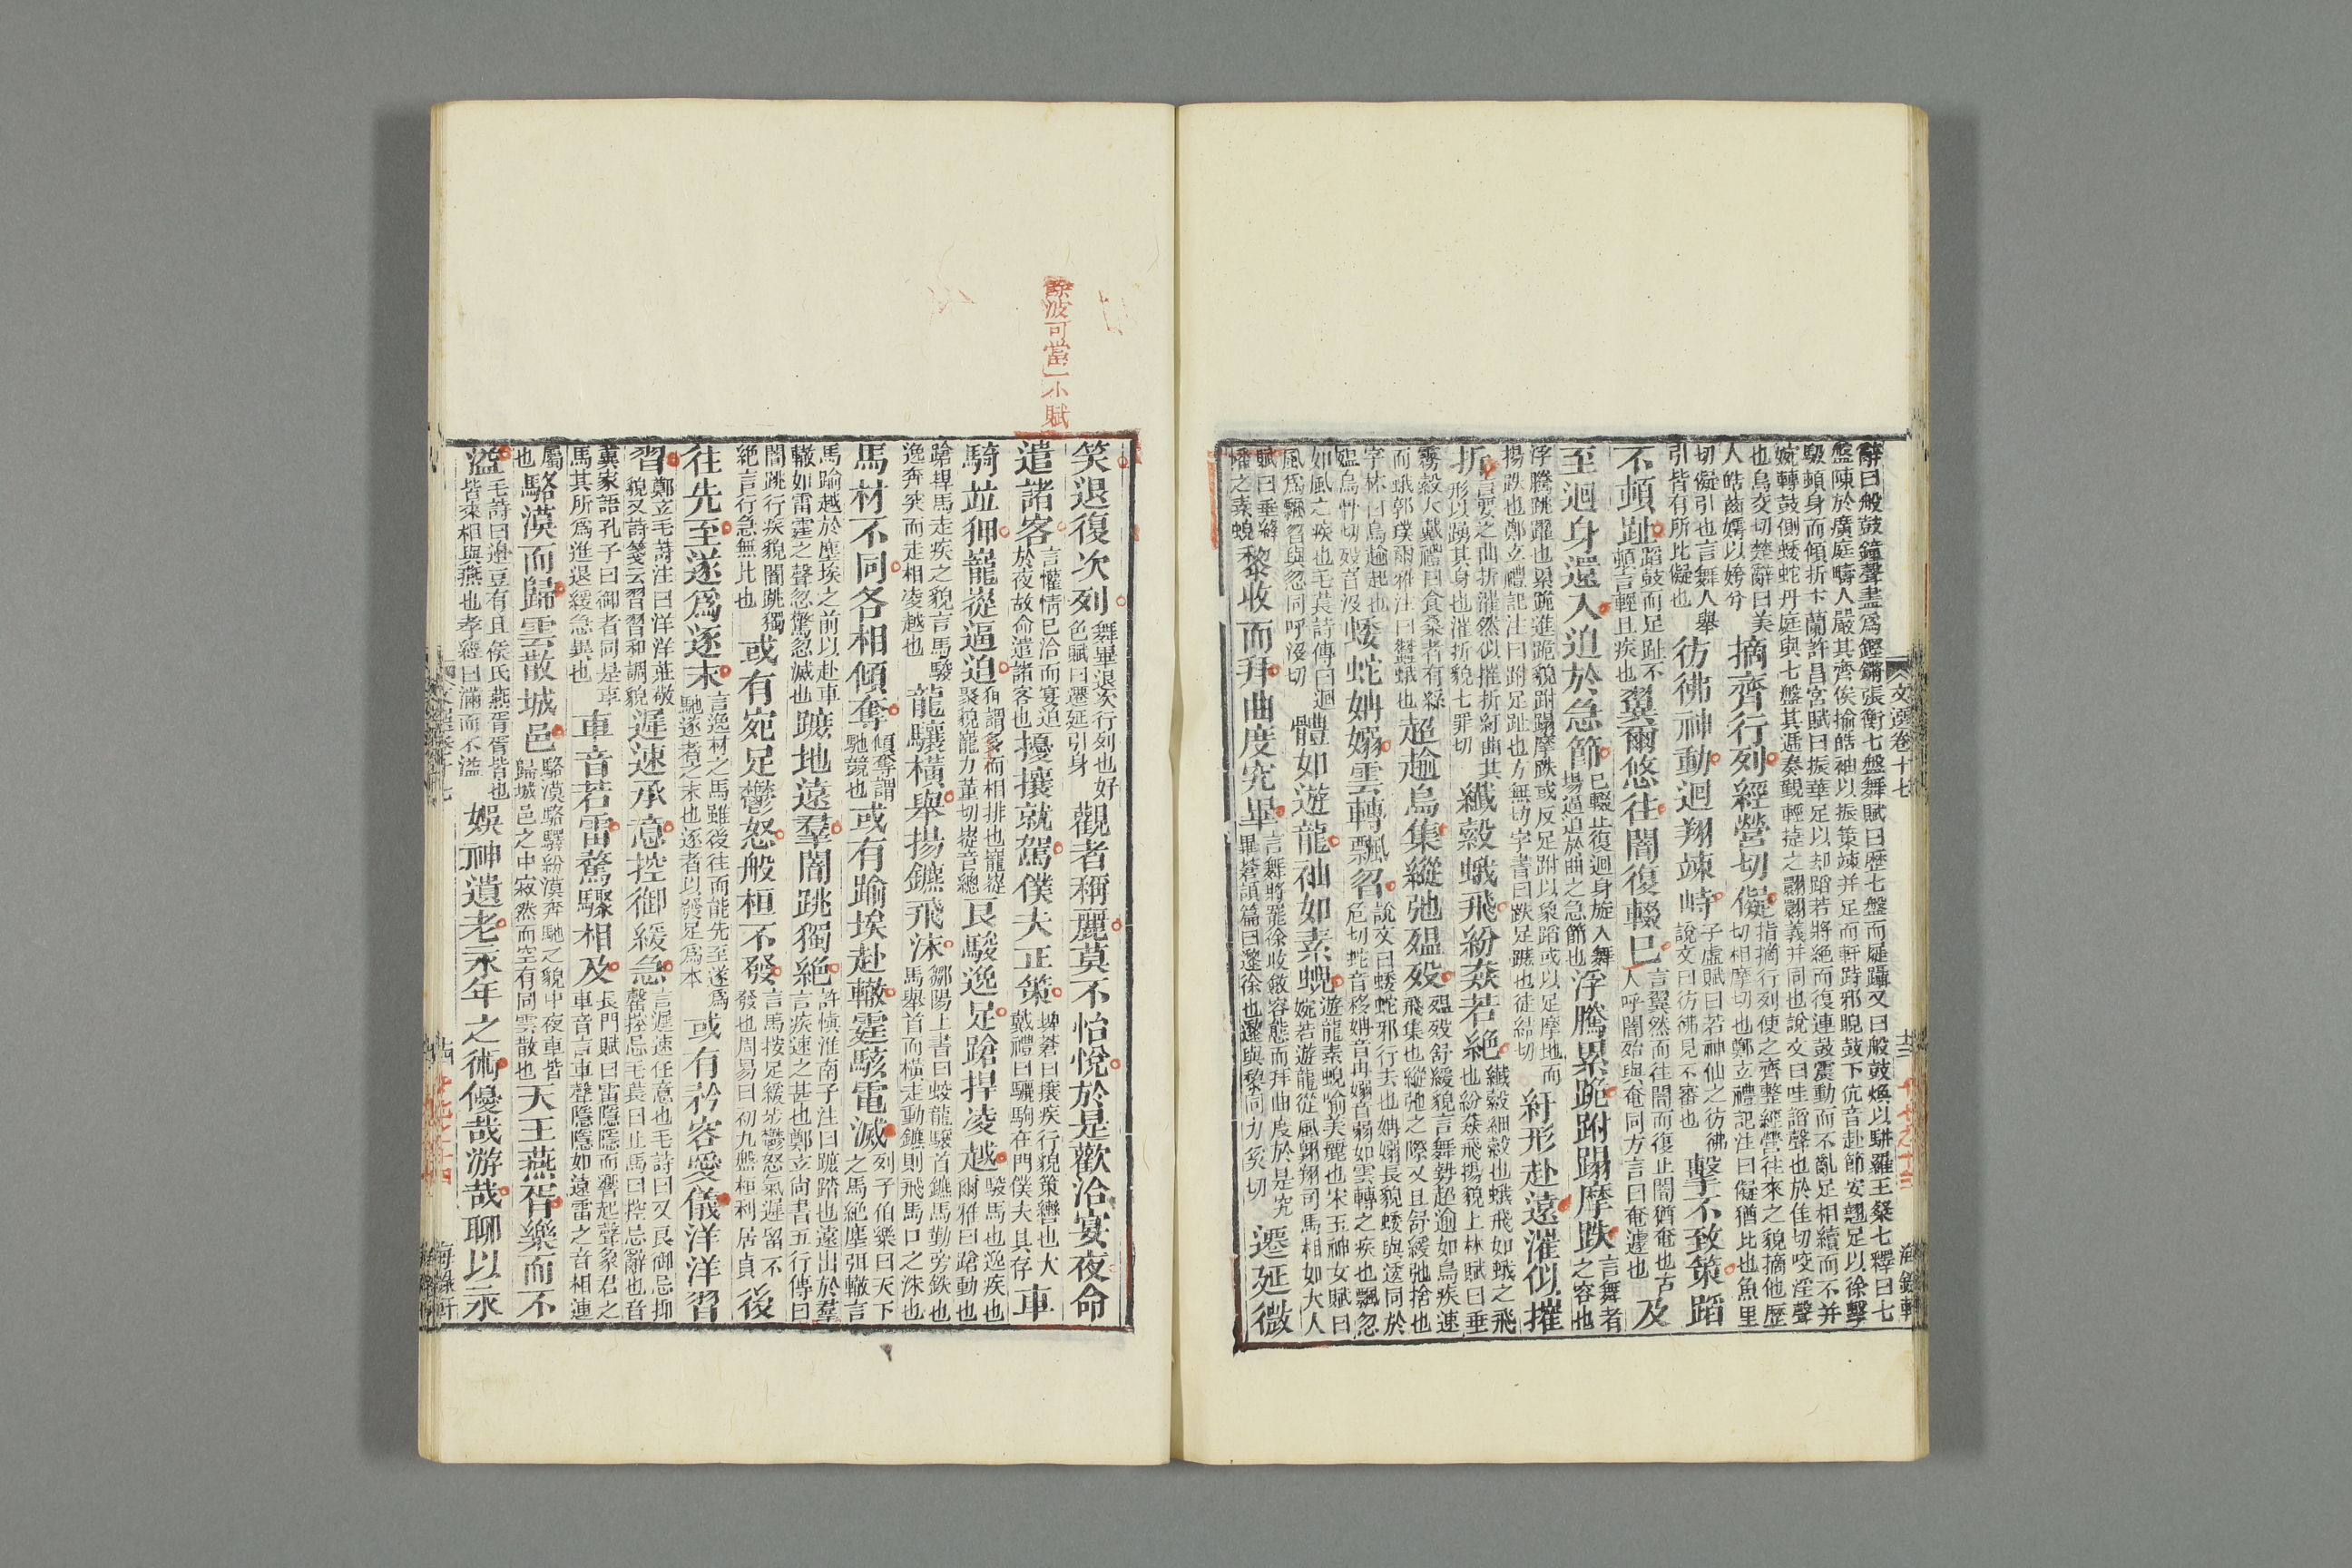 辭曰般鼓鐘聲盡爲鏗鏘張衡七盤舞賦曰歷七盤而屣躡又曰般鼓煥以駢羅王粲七釋曰七
盤陳於廣庭疇人嚴其齊俟揄皓袖以振策竦并足而軒跱邪睨鼓下伉音赴節安翹足以徐擊
馺頓身而傾折卞蘭許昌宮賦曰振華足以却蹈若將絕而復連鼓震動而不亂足相續而不并
婉轉鼓側蜲蛇丹庭與七盤其遞奏覲輕捷之翾翾義并同也說文曰哇諂聲也於佳切咬淫聲
也烏交切楚辭曰美人皓齒嫮以姱兮摘齊行列經營切儗指摘行列使之齊整經營往來之貌摘他歷切相摩切也鄭玄禮記注曰儗猶比也魚里
切儗引也言舞人舉引皆有所比儗也彷彿神動迴翔竦峙子虛賦曰若神仙之彷彿說文曰彷彿見不審也擊不致策蹈
不頓趾蹈鼓而足趾不頓言輕且疾也翼爾悠往闇復輟已言翼然而往闇而復止闇猶奄也古人呼闇殆與奄同方言曰奄遽也及
至迴身還入迫於急節已輟止復迴身旋入舞場逼迫於曲之急節也浮騰累跪跗蹋摩跌言舞者之容也
浮騰跳躍也累跪進跪貌跗蹋摩跌或反足跗以象蹈或以足摩地而揚跌也鄭玄禮記注曰跗足趾也方無切字書曰跌足蹠也徒結切紆形赴遠漼似摧
折言要之曲折漼然似摧折紆曲其形以踴其身也漼折貌七罪切纖縠蛾飛紛猋若絕纖縠細縠也蛾飛如蛾之飛也紛猋飛揚貌上林賦曰垂
霧縠大戴禮曰食桑者有絲而蛾郭璞爾雅注曰蠶蛾也超趫鳥集縱弛殟歿殟歿舒緩貌言舞勢超逾如鳥疾速飛集也縱弛之際又且舒緩弛捨也
殟烏骨切歿音沒蜲蛇姌嫋雲轉飄曶說文曰蜲蛇邪行去也姌嫋長貌蜲與逶同於危切蛇音移姌音冉嫋音弱如雲轉之疾也飄忽
如風之疾也毛萇詩傳曰迴風爲飄曶與忽同呼沒切體如遊龍袖如素蜺遊龍素蜺喻美麗也宋玉神女賦曰婉若遊龍從風翱翔司馬相如大人
賦曰垂絳幡之素蜺黎收而拜曲度究畢言舞將罷徐收斂容態而拜曲度於是究畢蒼頡篇曰邌徐也邌與黎同力奚切遷延微
文選卷十七
十三
海錄軒
餘波可當一小賦
笑退復次列舞畢退次行列也好色賦曰遷延引身觀者稱麗莫不怡悅於是歡洽宴夜命
遣諸客言懽情已洽而宴迫於夜故命遣諸客也擾攘就駕僕夫正策埤蒼曰攘疾行貌策轡也大戴禮曰驪駒在門僕夫具存車
騎並狎巃嵸逼迫狎謂多而相排也巃嵸聚貌巃力董切嵸音總良駿逸足蹌捍凌越駿馬也逸疾也爾雅曰蹌動也
蹌捍馬走疾之貌言馬駿逸奔突而走相凌越也龍驤橫舉揚鑣飛沫鄒陽上書曰蛟龍驤首鑣馬勒旁鐵也馬舉首而橫走動鑣則飛馬口之沫也
馬材不同各相傾奪傾奪謂馳競也或有踰埃赴轍霆駭電滅列子伯樂曰天下之馬絕塵弭轍言
馬踰越於塵埃之前以赴車轍如雷霆之聲忽驚忽滅也蹠地遠羣闇跳獨絕許愼淮南子注曰蹠踏也遠出於羣言疾速之甚也鄭玄尚書五行傳曰
闇跳行疾貌闇跳獨絕言行急無比也或有宛足鬱怒般桓不發言馬按足緩步鬱怒氣遲留不發也周易曰初九盤桓利居貞後
往先至遂爲逐末言逸材之馬雖後往而能先至遂爲馳逐者之末也逐者以發足爲本或有矜容愛儀洋洋習
習鄭玄毛詩注曰洋洋莊敬貌又詩箋云習習和調貌遲速承意控御緩急言遲速任意也毛詩曰又良御忌抑罄控忌毛萇曰止馬曰控忌辭也音
冀家語孔子曰御者同是車馬其所爲進退緩急異也車音若雷騖驟相及長門賦曰雷隱隱而響起聲象君之車音言車聲隱隱如遠雷之音相連
屬也駱漠而歸雲散城邑駱漠駱驛紛漠奔馳之貌中夜車皆歸城邑之中寂然而空有同雲散也天王燕胥樂而不
溢毛詩曰籩豆有且侯氏燕胥胥皆也皆來相與燕也孝經曰滿而不溢娛神遺老永年之術優哉游哉聊以永